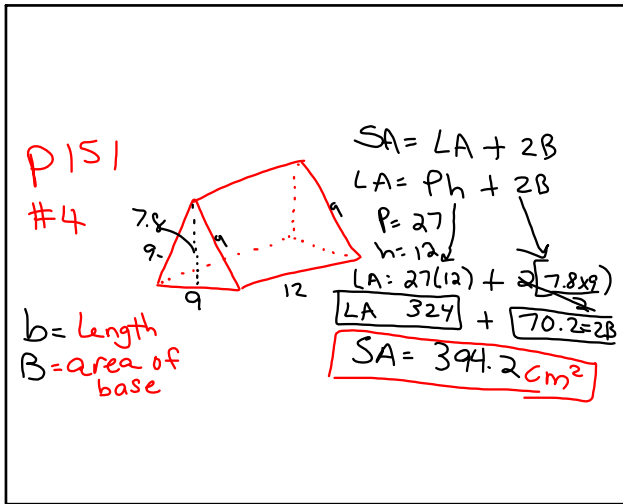 p 151
#4
7.8
9
9
9
9
12
b = Length
B = area of
base
SA = LA + 2B
LA = Ph + 2B
P = 27
h = 12
LA: 27(12) + 2(7.8 x 9)
2
LA 324 + 70.2 = 2B
SA = 394.2 cm²